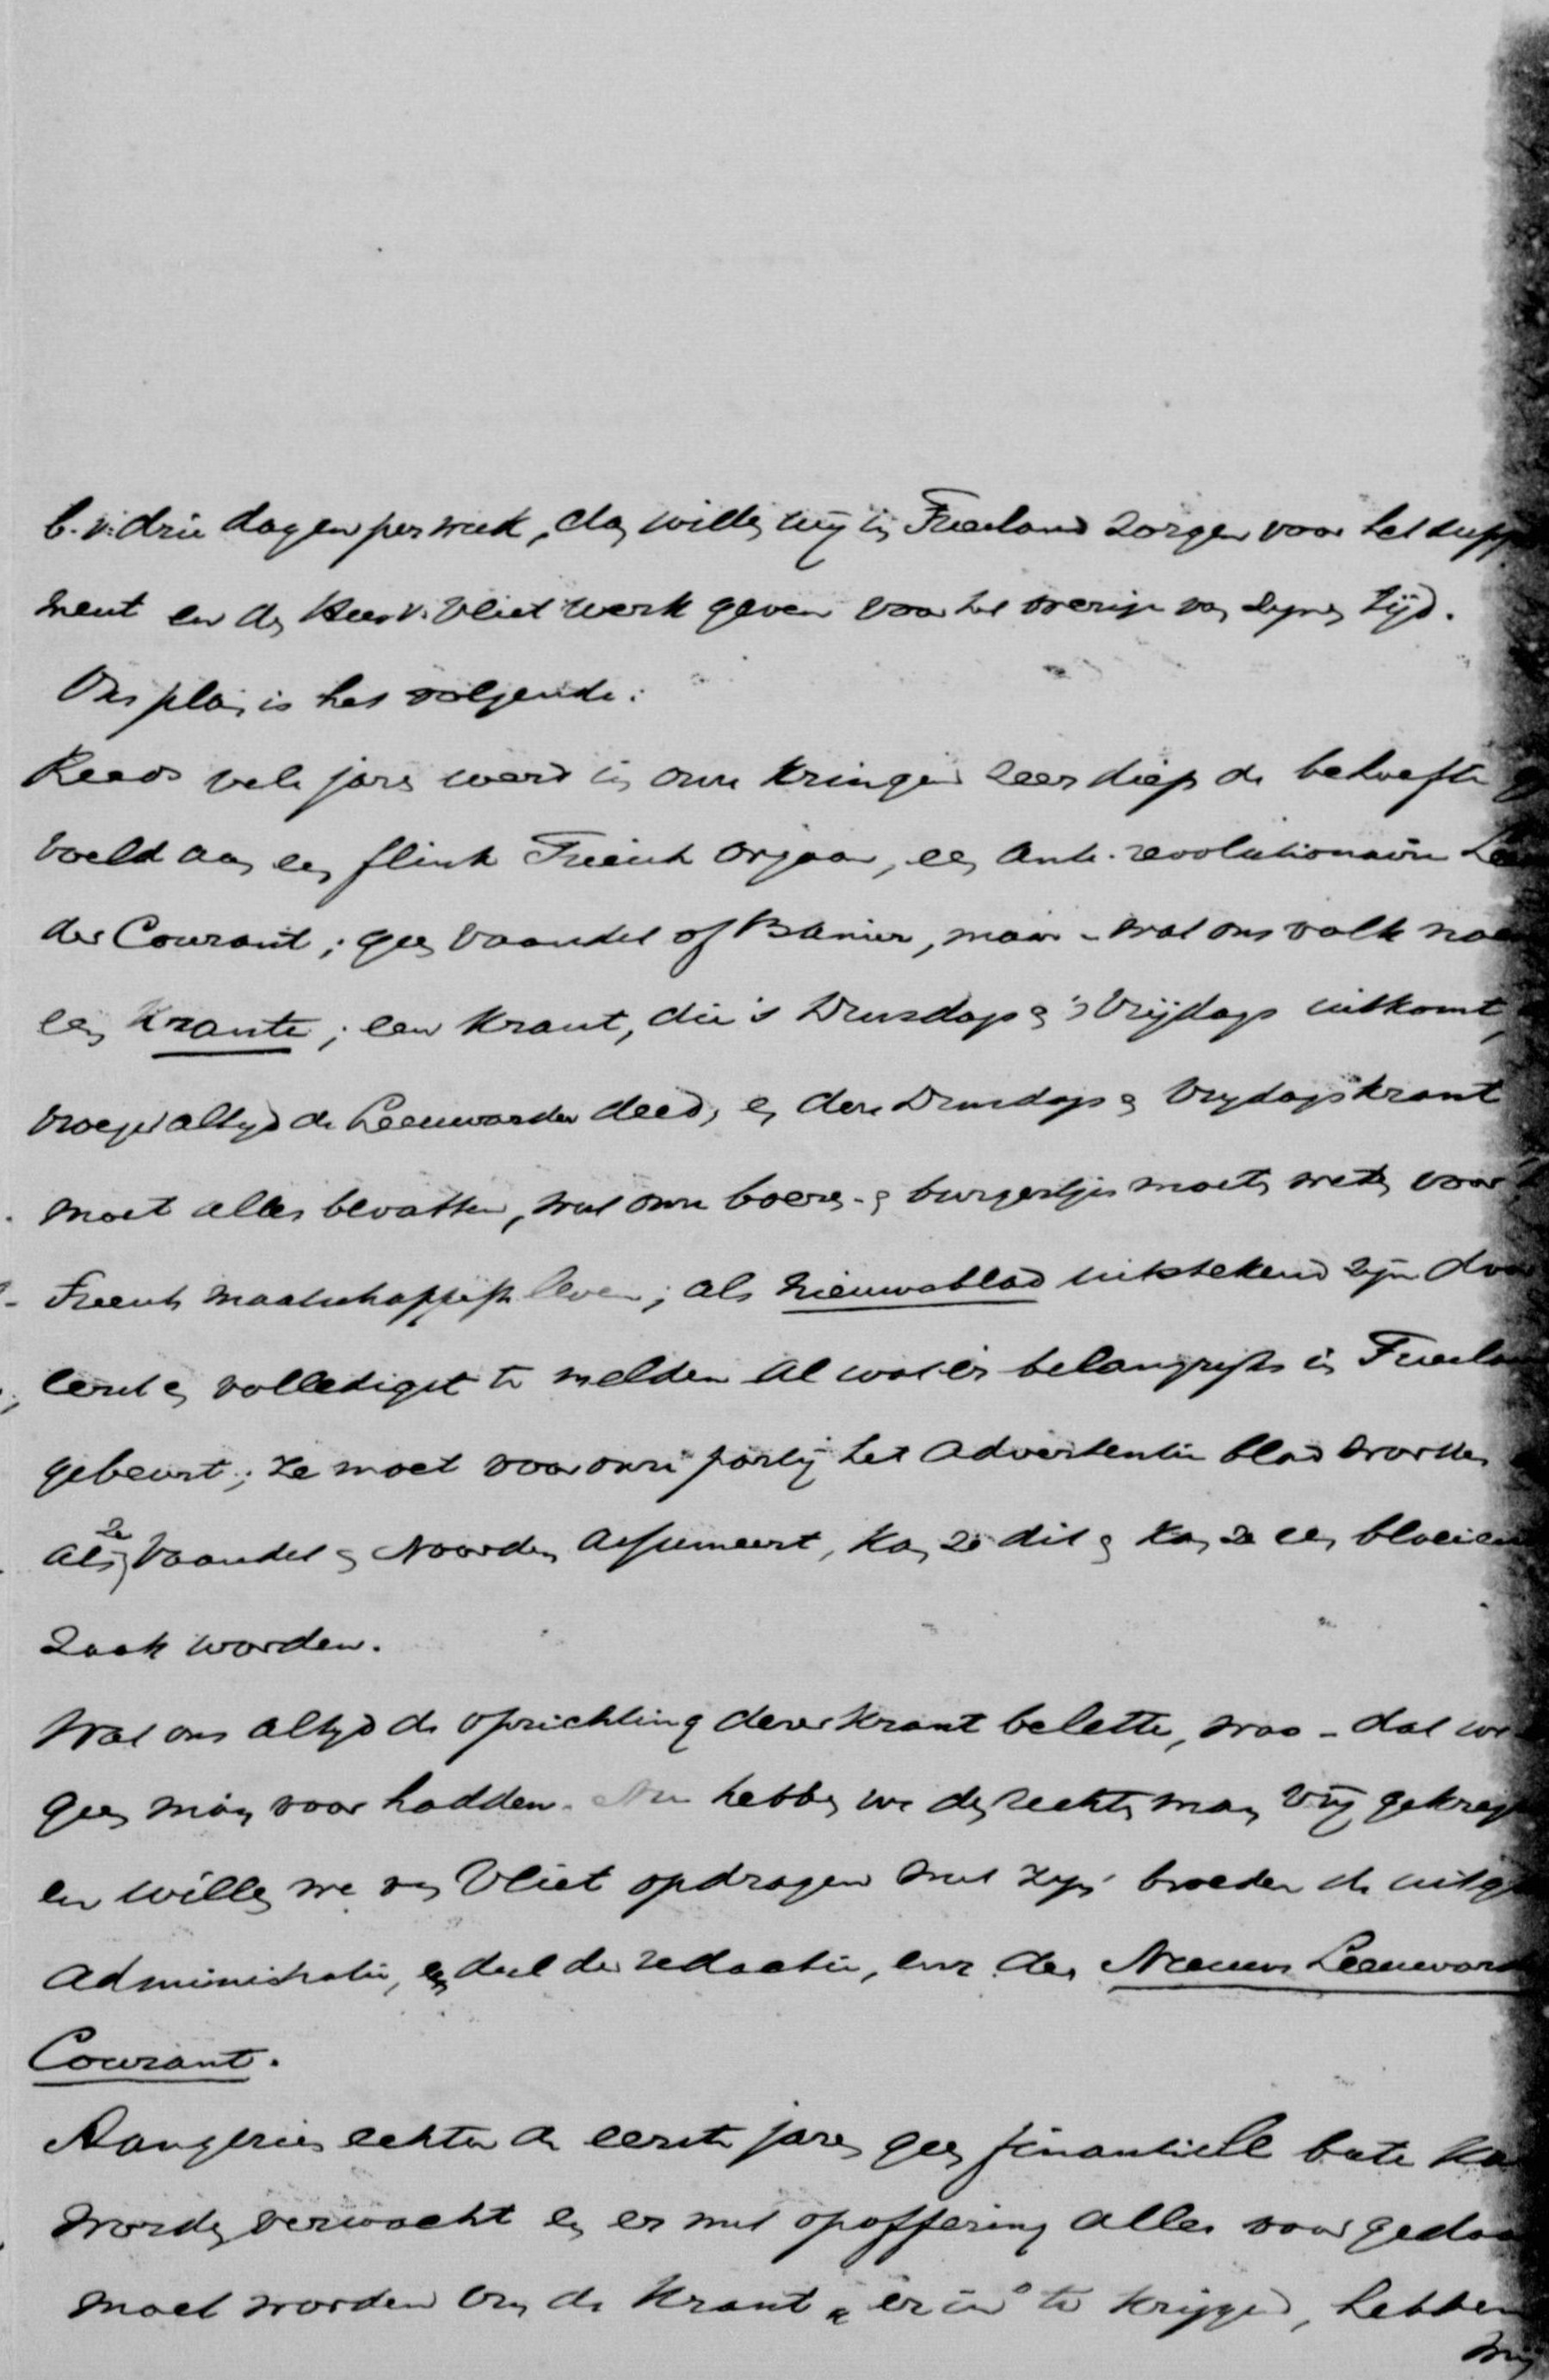 b.v. drie dagen per week, dan willen wij in Friesland zorgen voor het supp
ment en den Heer v. Vliet werk geven voor het overige van zijnen tijd.
Ons plan is het volgende:
Reeds vele jaren werd in onze kringen zeer diep de behoefte g
voeld aan een flink Friesch orgaan, een Anti-revolutionaire Lee
der Courant; geen Vaandel of Banier, maar - wat ons volk noe
een Krante; een Krant, die 's Dinsdags & 's Vrijdags uitkomt,
vroeger altijd de Leeuwarder deed, en deze Dinsdags & Vrijdagskrant
moet alles bevatten, wat onze boeren- & burgertjes moeten weten voor
Friesch maatschappelijk leven; als Nieuwsblad uitstekend zijn door
eerst en volledigst te melden al wat er belangrijks in Frieslan
gebeurt; ze moet voor onze partij het Advertentie blad worden
Als ze Vaandel & Noorden assumeert, kan ze dit & kan ze een bloeien
zaak worden.
Wat ons altijd de oprichting dezer krant belette, was - dat we
geen man voor hadden. Nu hebben we den rechten man vrij gekreg
en willen we van Vliet opdragen met zijn broeder de uitg
Administratie, een deel der redactie, enz. der Nieuwe Leeuward
Courant.
Aangezien echter de eerste jaren geen financiëele bate ka
worden verwacht en er met opoffering alles voor gedaa
moet worden om de Krant "er in" te krijgen, hebben
wij